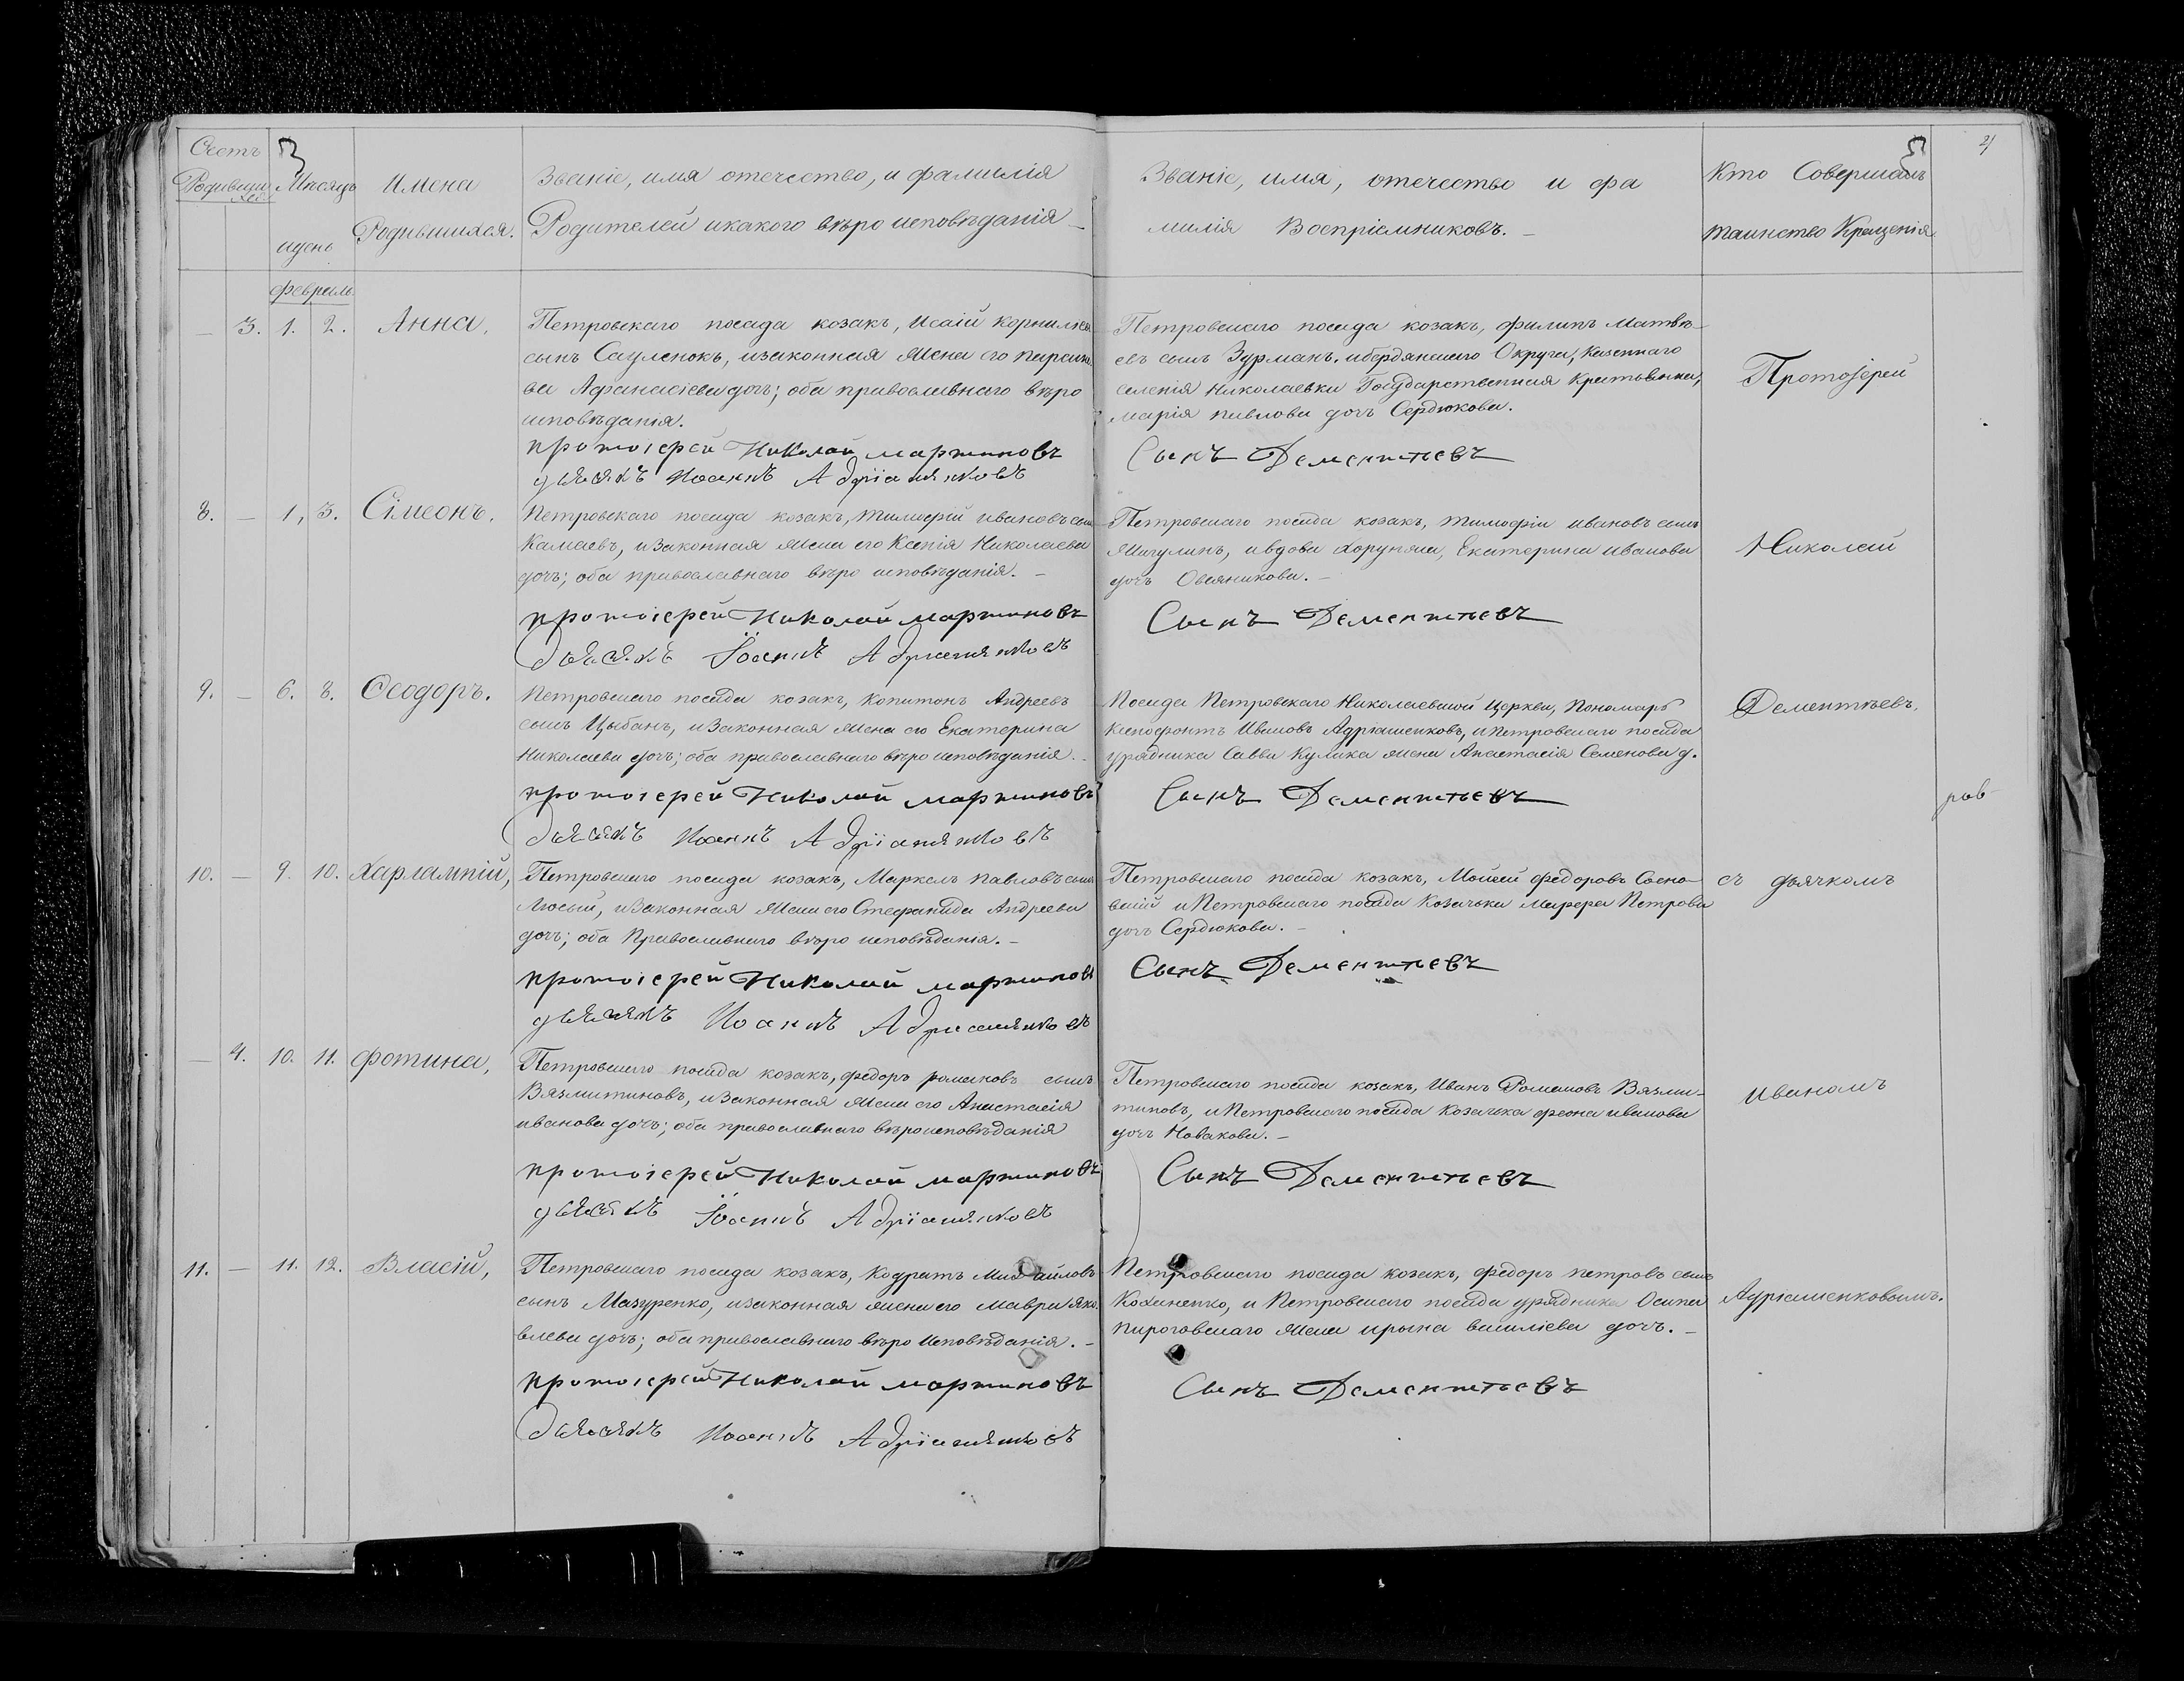 Счетъ
Родившихся
Мѣсяцъ
и день
Имена
Родившихся.
Званіе, имя отечество, и фамилія
Родителей и какого вѣро исповѣданія –
Званіе, имя, отечество и фа
милія Воспріемниковъ. –
Кто Совершалъ
таинство Крещенія
4
февраль
– 3. 1. 2. Анна,
Петровскаго посада козакъ, Исаій Корниліевъ
сынъ Сауленокъ, и законная жена его Параске
ва Афанасіева дочь; оба православнаго вѣро
исповѣданія.
протоіерей Николай мартиновъ
дьячекъ Иоаннъ Адріашенковъ
Петровскаго посада козакъ, филипъ Матвѣ
евъ сынъ Зурманъ, и бердянскаго Округа, Казеннаго
селенія Николаевки Государственная Крестьянка,
марія павлова дочь Сердюкова.
Сынъ Дементьевъ
Протоіерей
8. – 1, 3. Сімеонъ,
Петровскаго посада козакъ, тимофій ивановъ сынъ
Камаевъ, и Законная жена его Ксенія Николаева
дочь; оба православнаго вѣро исповѣданія. –
протоіерей Николай мартиновъ
дьячекъ Іоаннъ Адріашенковъ
Петровскаго посада козакъ, тимофіи ивановъ сынъ
Мигулинъ, и вдова хорунжа, Екатерина иванова
дочь Овсяникова. –
Сынъ Дементьевъ
Николай
9. – 6. 8. Ѳеодоръ.
Петровскаго посада козакъ, Капитонъ Андреевъ
сынъ Цыбань, и Законная жена его Екатерина
Николаева дочь; оба православнаго вѣро исповѣданія. –
протоіерей Николай мартиновъ
дьячекъ Иоаннъ Адріашенковъ
Посада Петровскаго Николаевской Церкви, Пономарь
Ксенофонтъ Ивановъ Адріашенковъ, и Петровскаго посада
урядника Саввы Кулика жена Анастасія Семенова д.
Сынъ Дементьевъ
Дементьевъ,
10. – 9. 10. Харлампій,
Петровскаго посада козакъ, Маркелъ павловъ сынъ
Люсый, и Законная жена его Стефанида Андреева
дочь; оба Православнаго вѣро исповѣданія. –
протоіерей Николай мартиновъ
дьячекъ Иоаннъ Адріашенковъ
Петровскаго посада козакъ, Мойсей федоровъ Сосно
вскій и Петровскаго посада Козачька Марфа Петрова
дочь Сердюкова. –
Сынъ Дементьевъ
съ дьячкомъ
– 4. 10. 11. фотина,
Петровскаго посада козакъ, федоръ романовъ сынъ
Вязмитиновъ, и Законная жена его Анастасія
иванова дочь; оба православнаго вѣроисповѣданія
протоіерей Николай мартиновъ
дьячекъ Іоаннъ Адріашенковъ
Петровскаго посада козакъ, Иванъ Романовъ Вязми-
тиновъ, и Петровскаго посада Козачька феона иванова
дочь Новакова. –
Сынъ Дементьевъ
Иваномъ
11. – 11. 12. Власій,
Петровскаго посада козакъ, Кодратъ Михайловъ
сынъ Мазуренко, и законная жена его Мавра Яко
влева дочь; оба православнаго вѣро Исповѣданія. –
протоіерей Николай мартиновъ
дьячекъ Иоаннъ Адріашенковъ
Петровскаго посада козакъ, федоръ петровъ сынъ
Коханенко, и Петровскаго посада урядника Осипа
пироговскаго жена ирына василіева дочь. –
Сынъ Дементьевъ
Адріашенковымъ.